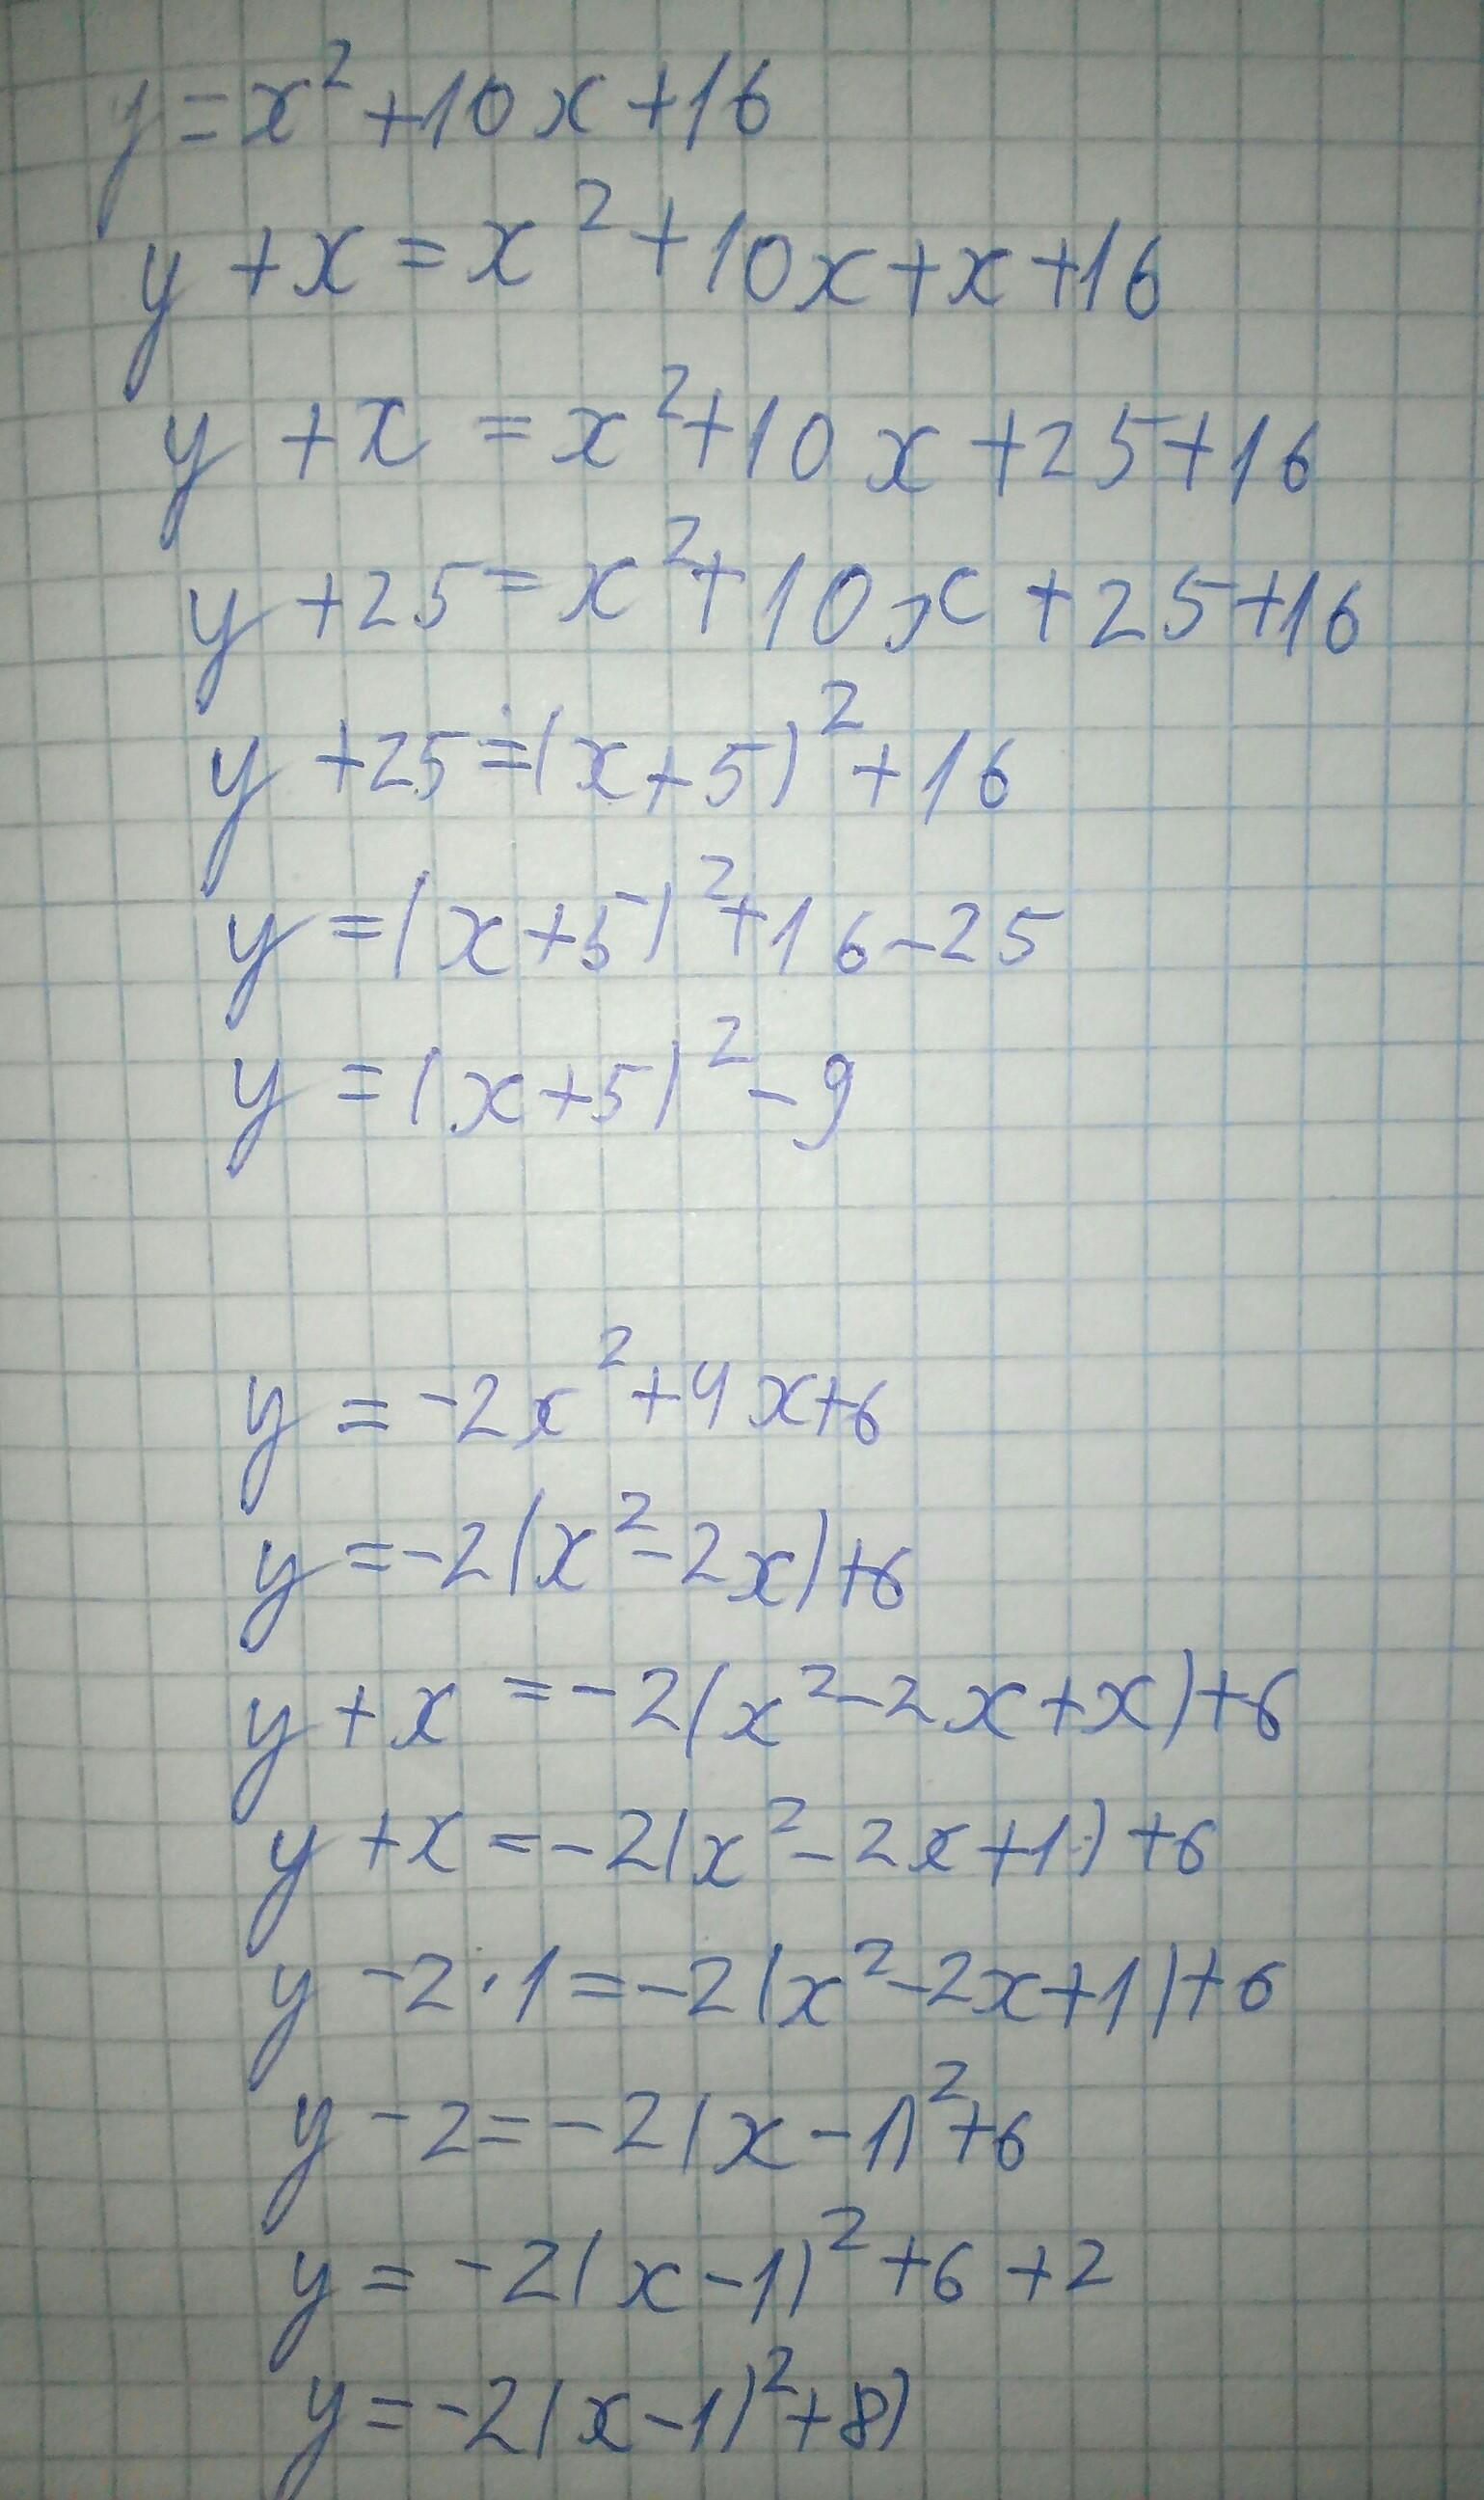 y=x²+10x+16
y+x=x²+10x+x+16
y+x=x²+10x+25+16
y+25=x²+10x+25+16
y+25=(x+5)²+16
y=(x+5)²+16-25
y=(x+5)²-9
y=-2x²+4x+6
y=-2(x²-2x)+6
y+x=-2(x²-2x+x)+6
y+x=-2(x²-2x+1)+6
y-2·1=-2(x²-2x+1)+6
y-2=-2(x-1)²+6
y=-2(x-1)²+6+2
y=-2(x-1)²+8)